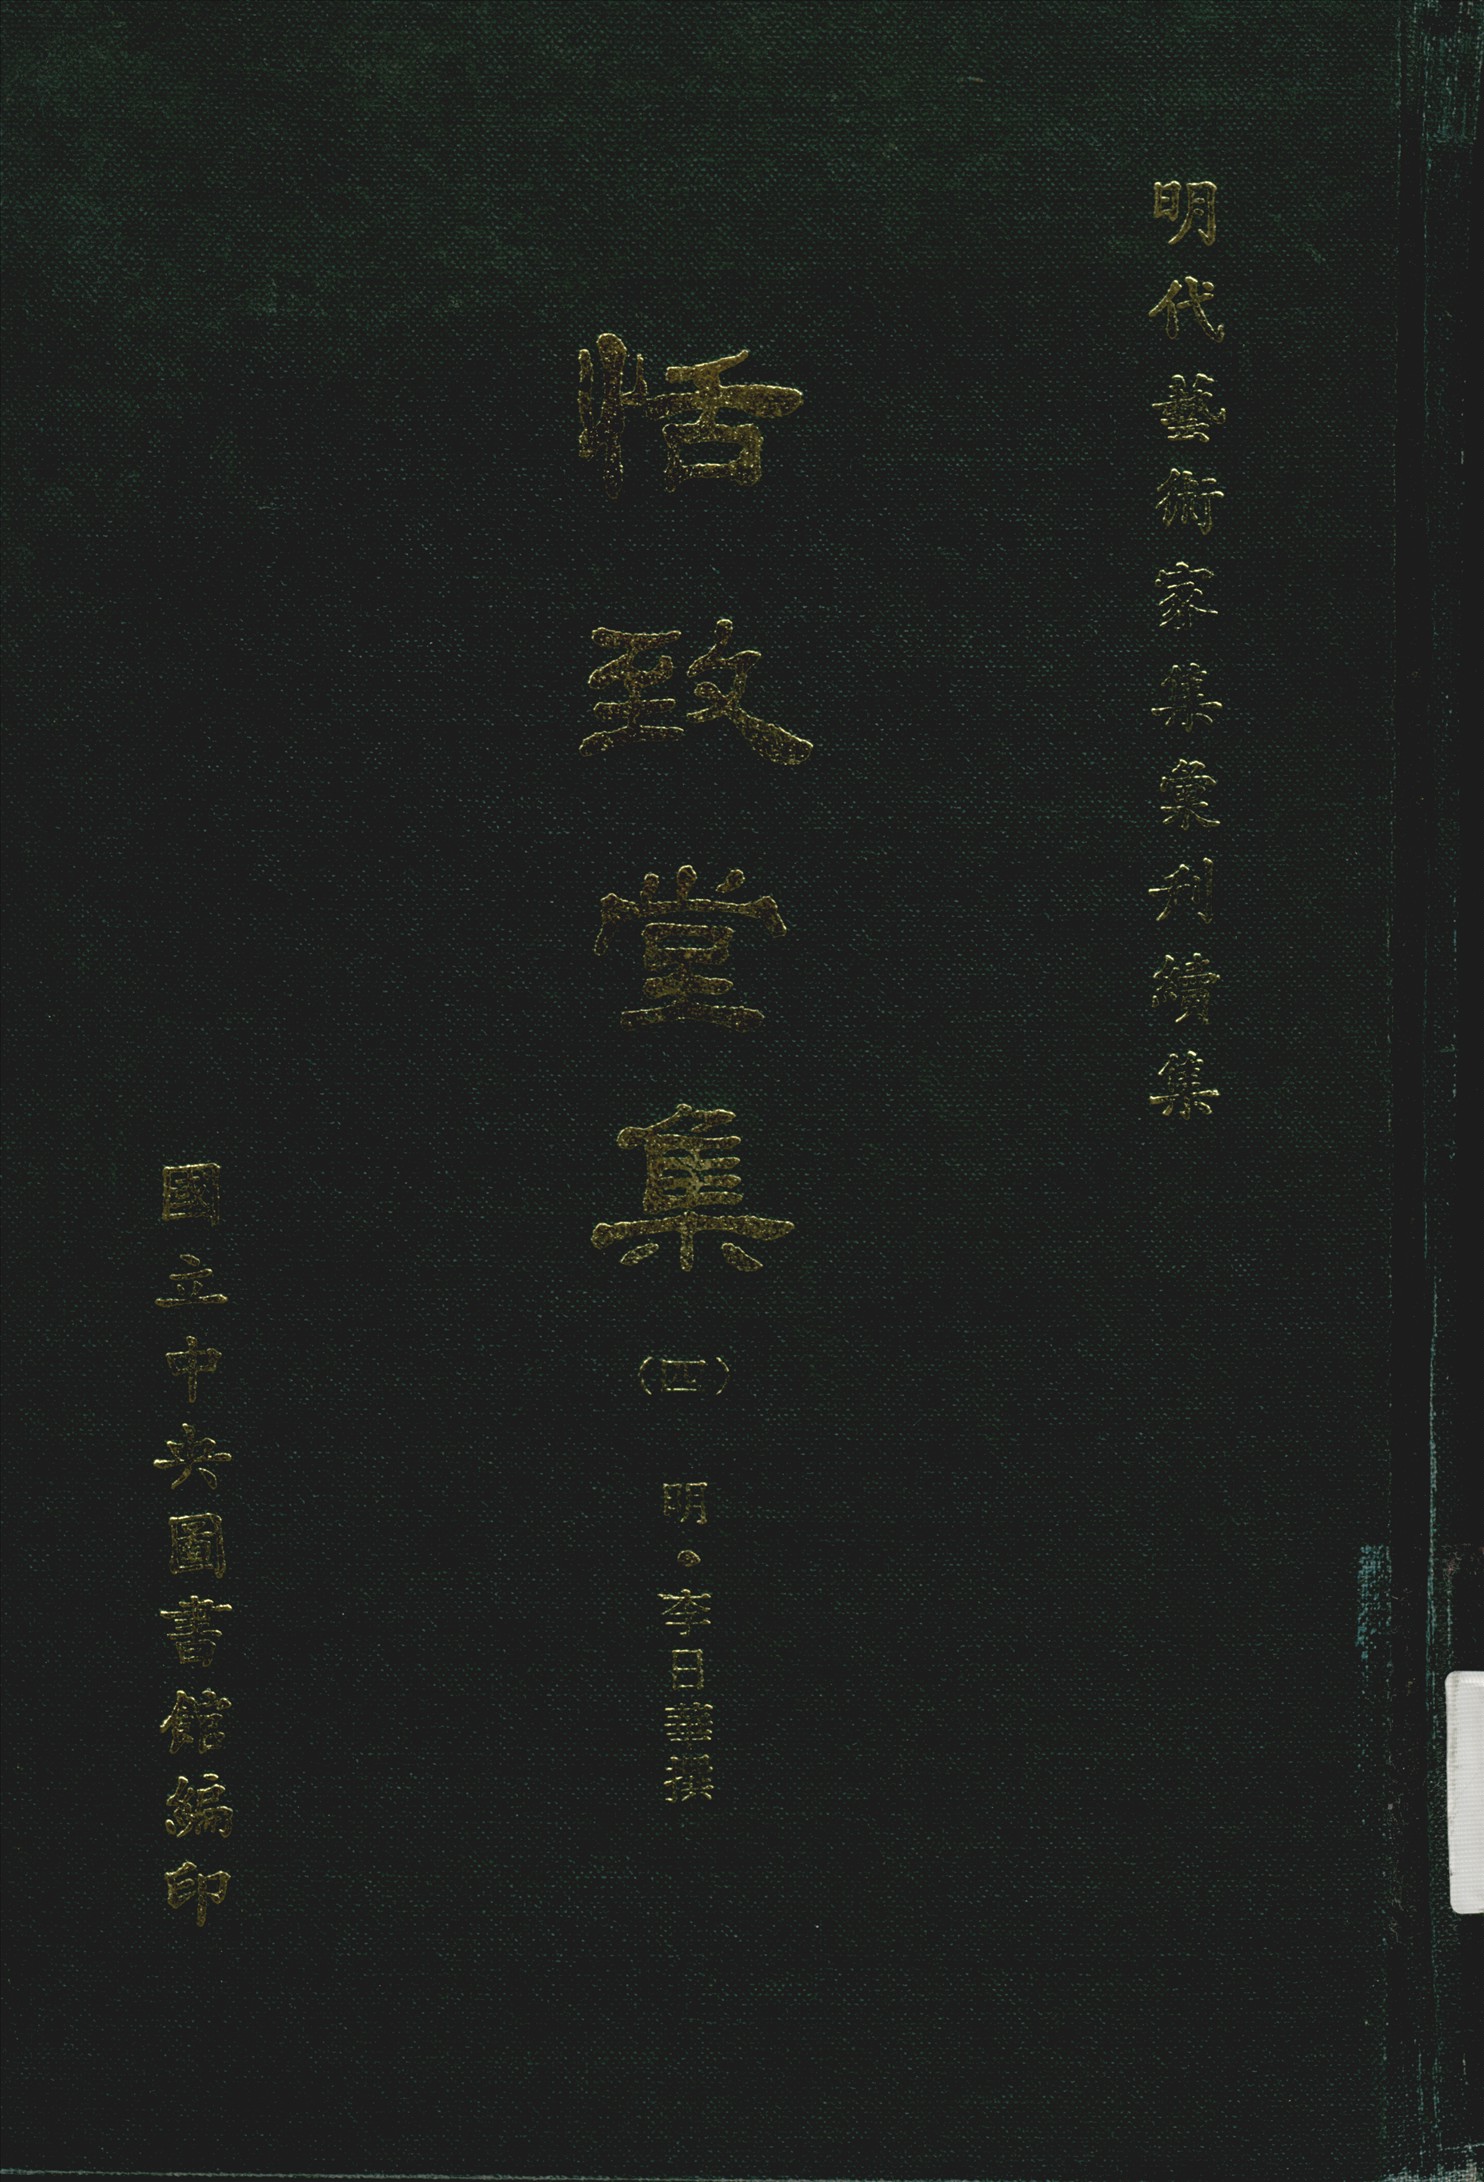 明代藝術家集彙刊續集
恬致堂集(四) 明·李日華撰
國立中央圖書館編印